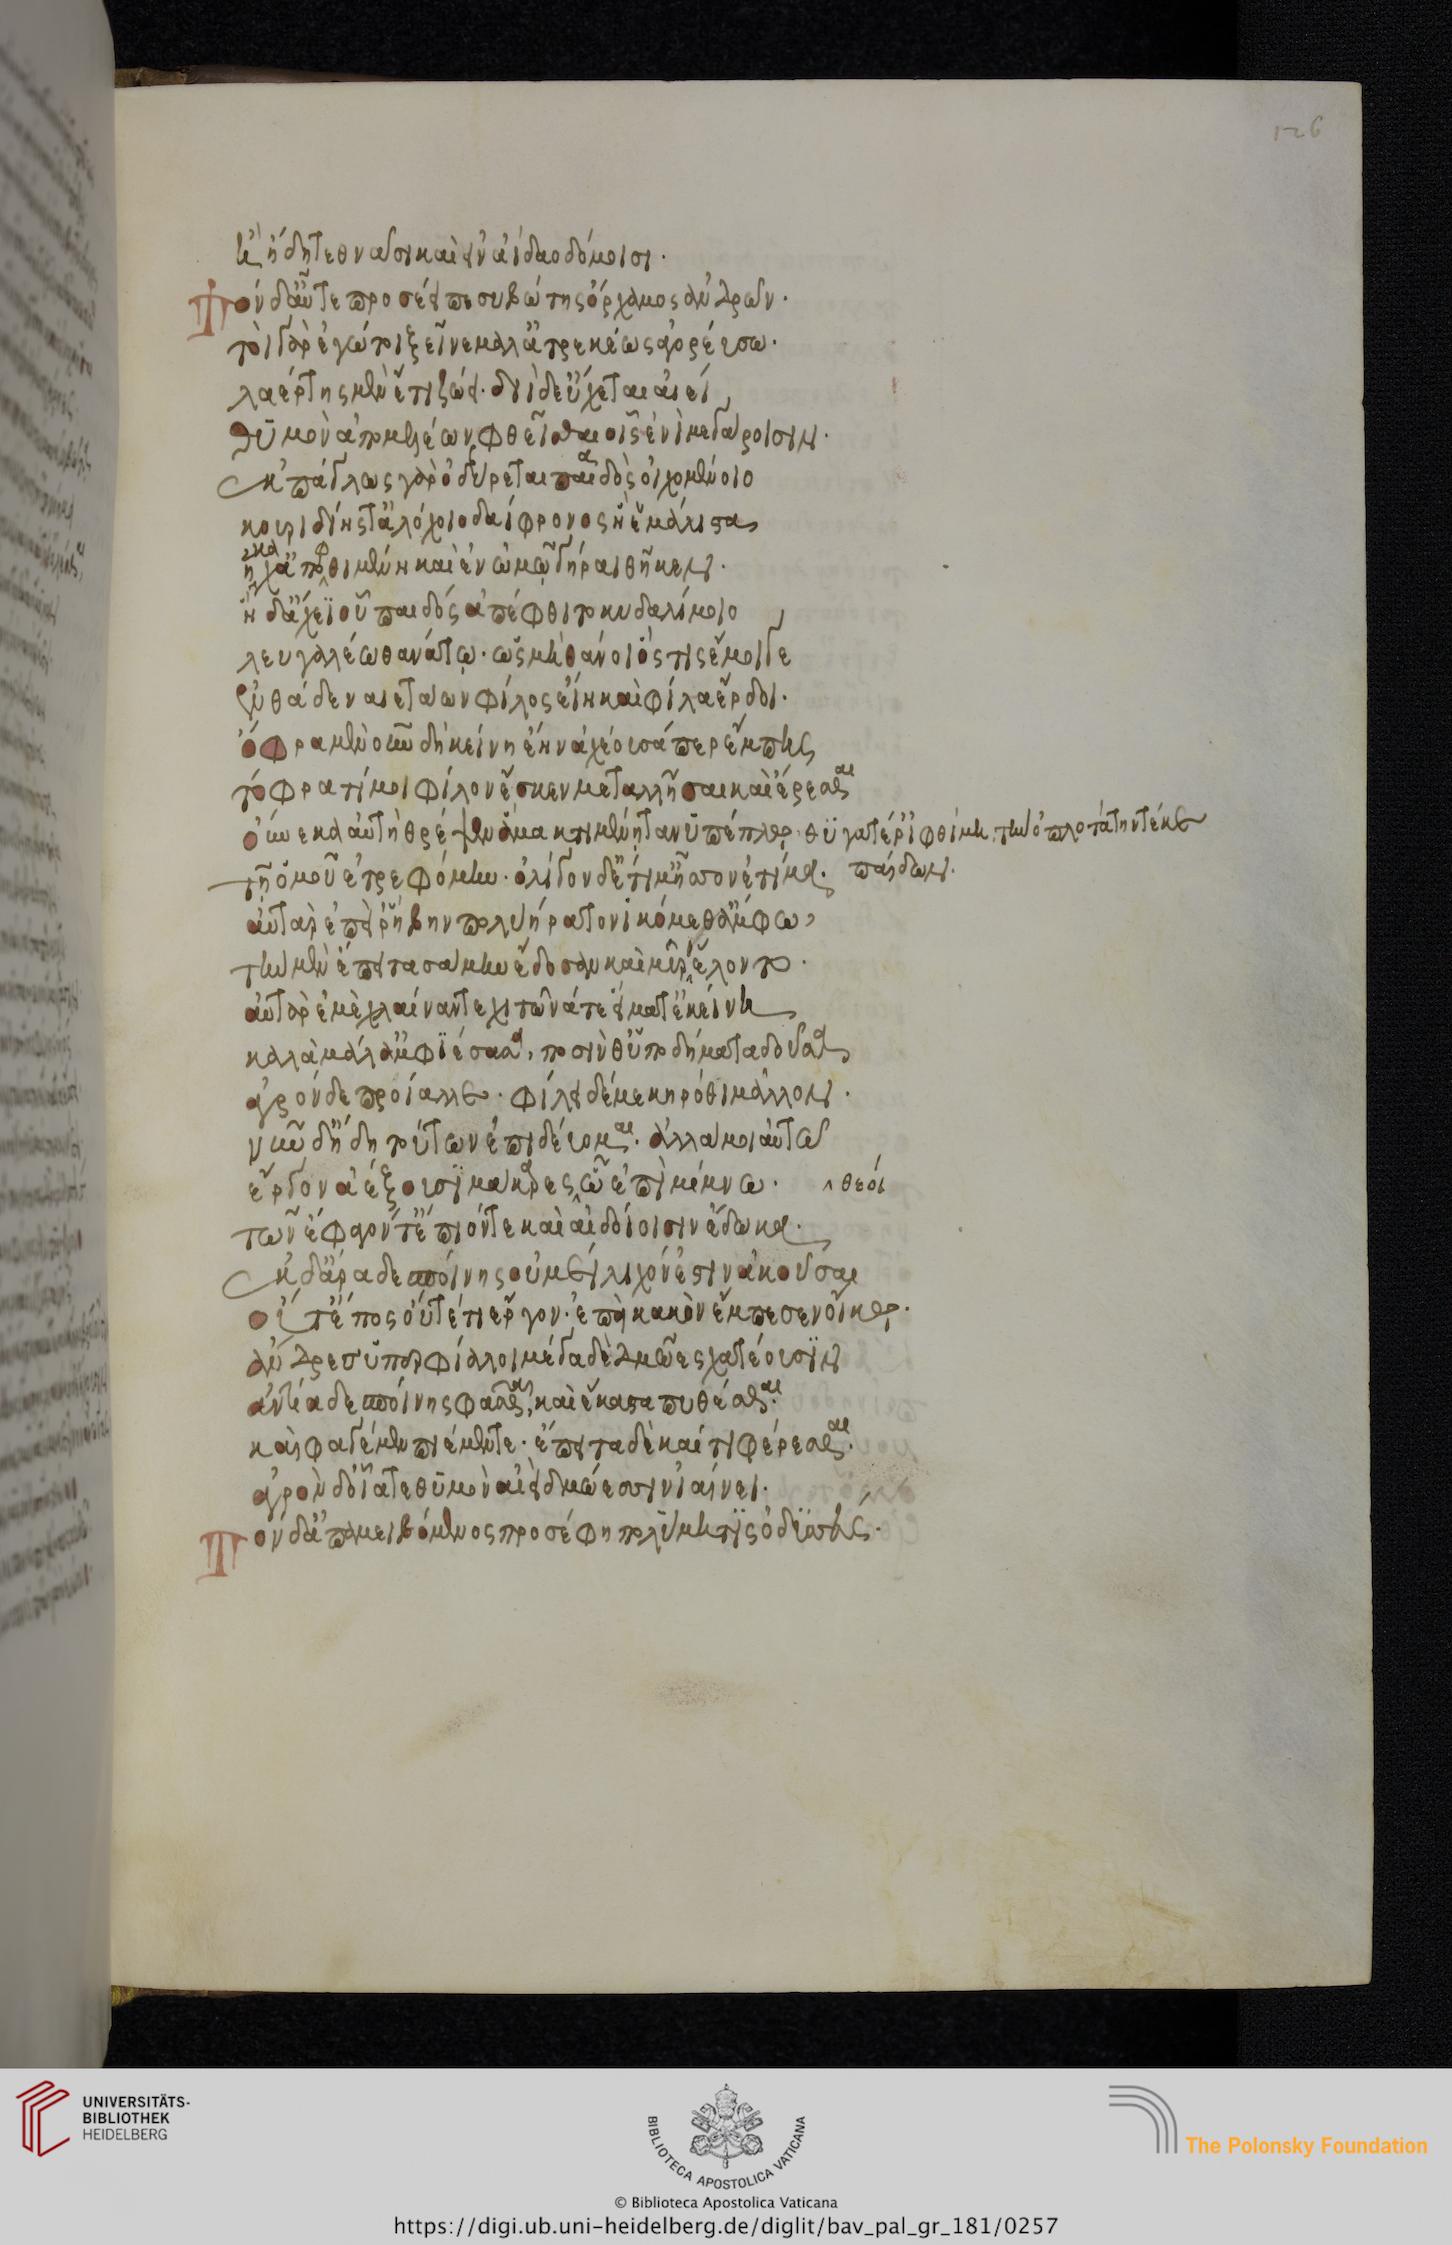 126
ἢ ἤδη τεθνᾶσι καὶ εἰν ἀΐδαο δόμοισι·
Τὸν δ' αὖτε προσέειπε συβώτης ὄρχαμος ἀνδρῶν·
τοὶ γὰρ ἐγώ τοι ξεῖνε μάλ' ἀτρεκέως ἀγορεύσω·
λαέρτης μὲν ἔτι ζώει· διῒ δ' εὔχεται αἰεί,
θυμὸν ἀπὸ μελέων φθεῖσθαι οἷς ἐνὶ μεγάροισιν·
ἐκπάγλως γὰρ ὀδύρεται παιδὸς οἰχομένοιο
κουριδίης τ' ἀλόχοιο δαΐφρονος ἥ ἑ μάλιστα
ἤκαχ' ἀποφθιμένη καὶ ἐν ὠμῷ γήραϊ θῆκεν·
ἡ δ' ἄχεϊ οὗ παιδὸς ἀπέφθιτο κυδαλίμοιο,
λευγαλέω θανάτῳ· ὡς μὴ θάνοι ὅς τις ἔμοιγε
ἐνθάδε ναιετάων φίλος εἴη καὶ φίλα ἔρδοι·
ὄφρα μὲν οὖν δὴ κείνη ἔην ἀχέουσά περ ἔμπης
τόφρα τί μοι φίλον ἔσκεν μεταλλῆσαι καὶ ἔρεσθαι
οὕνεκά μ' αὐτὴ θρέψεν ἅμα κτιμένῃ τανυπέπλῳ· θυγατέρ' ἰφθίμη, τὴν ὁπλοτάτην τέκε
παίδων·
τῇ ὁμοῦ ἐτρεφόμην· ὀλίγον δέ τί μ' ἧσσον ἐτίμα.
αὐτὰρ ἐπεί ῥ' ἥβην πολυήρατον ἱκόμεθ' ἄμφω,
τὴν μὲν ἔπειτα σάμην ἔδοσαν καὶ μυρί' ἕλοντο·
αὐτὰρ ἐμὲ χλαῖνάν τε χιτῶνά τε εἵματ' ἐκείνη
καλὰ μάλ' ἀμφιέσασα, ποσὶν θ' ὑποδήματα δοῦσα
ἀγρόνδε προΐαλλε· φίλει δέ με κηρόθι μᾶλλον·
νῦν δ' ἤδη τούτων ἐπιδεύομαι· ἀλλά μοι αὐτῷ
ἔργον ἀέξουσι μάκαρες ᾧ ἐπιμίμνω· θεοὶ
τῶν ἔφαγόν τ' ἔπιόν τε καὶ αἰδοίοισιν ἔδωκα·
ἐκ δ' ἄρα δεσποίνης οὐ μείλιχόν ἐστιν ἀκοῦσαι
οὔτ' ἔπος οὔτέ τι ἔργον· ἐπεὶ κακὸν ἔμπεσεν οἴκῳ·
ἄνδρες ὑπερφίαλοι μέγα δὲ δμῶες χατέουσιν
ἀντία δεσποίνης φάσθαι, καὶ ἕκαστα πυθέσθαι·
καὶ φαγέμεν πιέμεν τε· ἔπειτα δὲ καί τι φέρεσθαι·
ἀγρὸν δ' οἷά τε θυμὸν αἰεὶ δμώεσσιν ἰαίνει·
Τὸν δ' ἀπαμειβόμενος προσέφη πολύμητις ὀδυσσεύς·
UNIVERSITÄTS-
BIBLIOTHEK
HEIDELBERG
BIBLIOTECA APOSTOLICA VATICANA
The Polonsky Foundation
© Biblioteca Apostolica Vaticana
https://digi.ub.uni-heidelberg.de/diglit/bav_pal_gr_181/0257